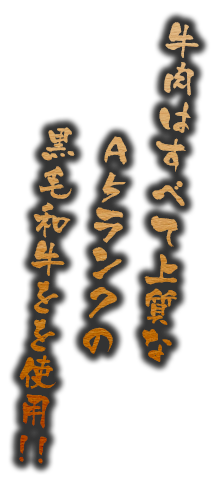 牛肉はすべて上質な
A5ランクの
黒毛和牛をを使用!!